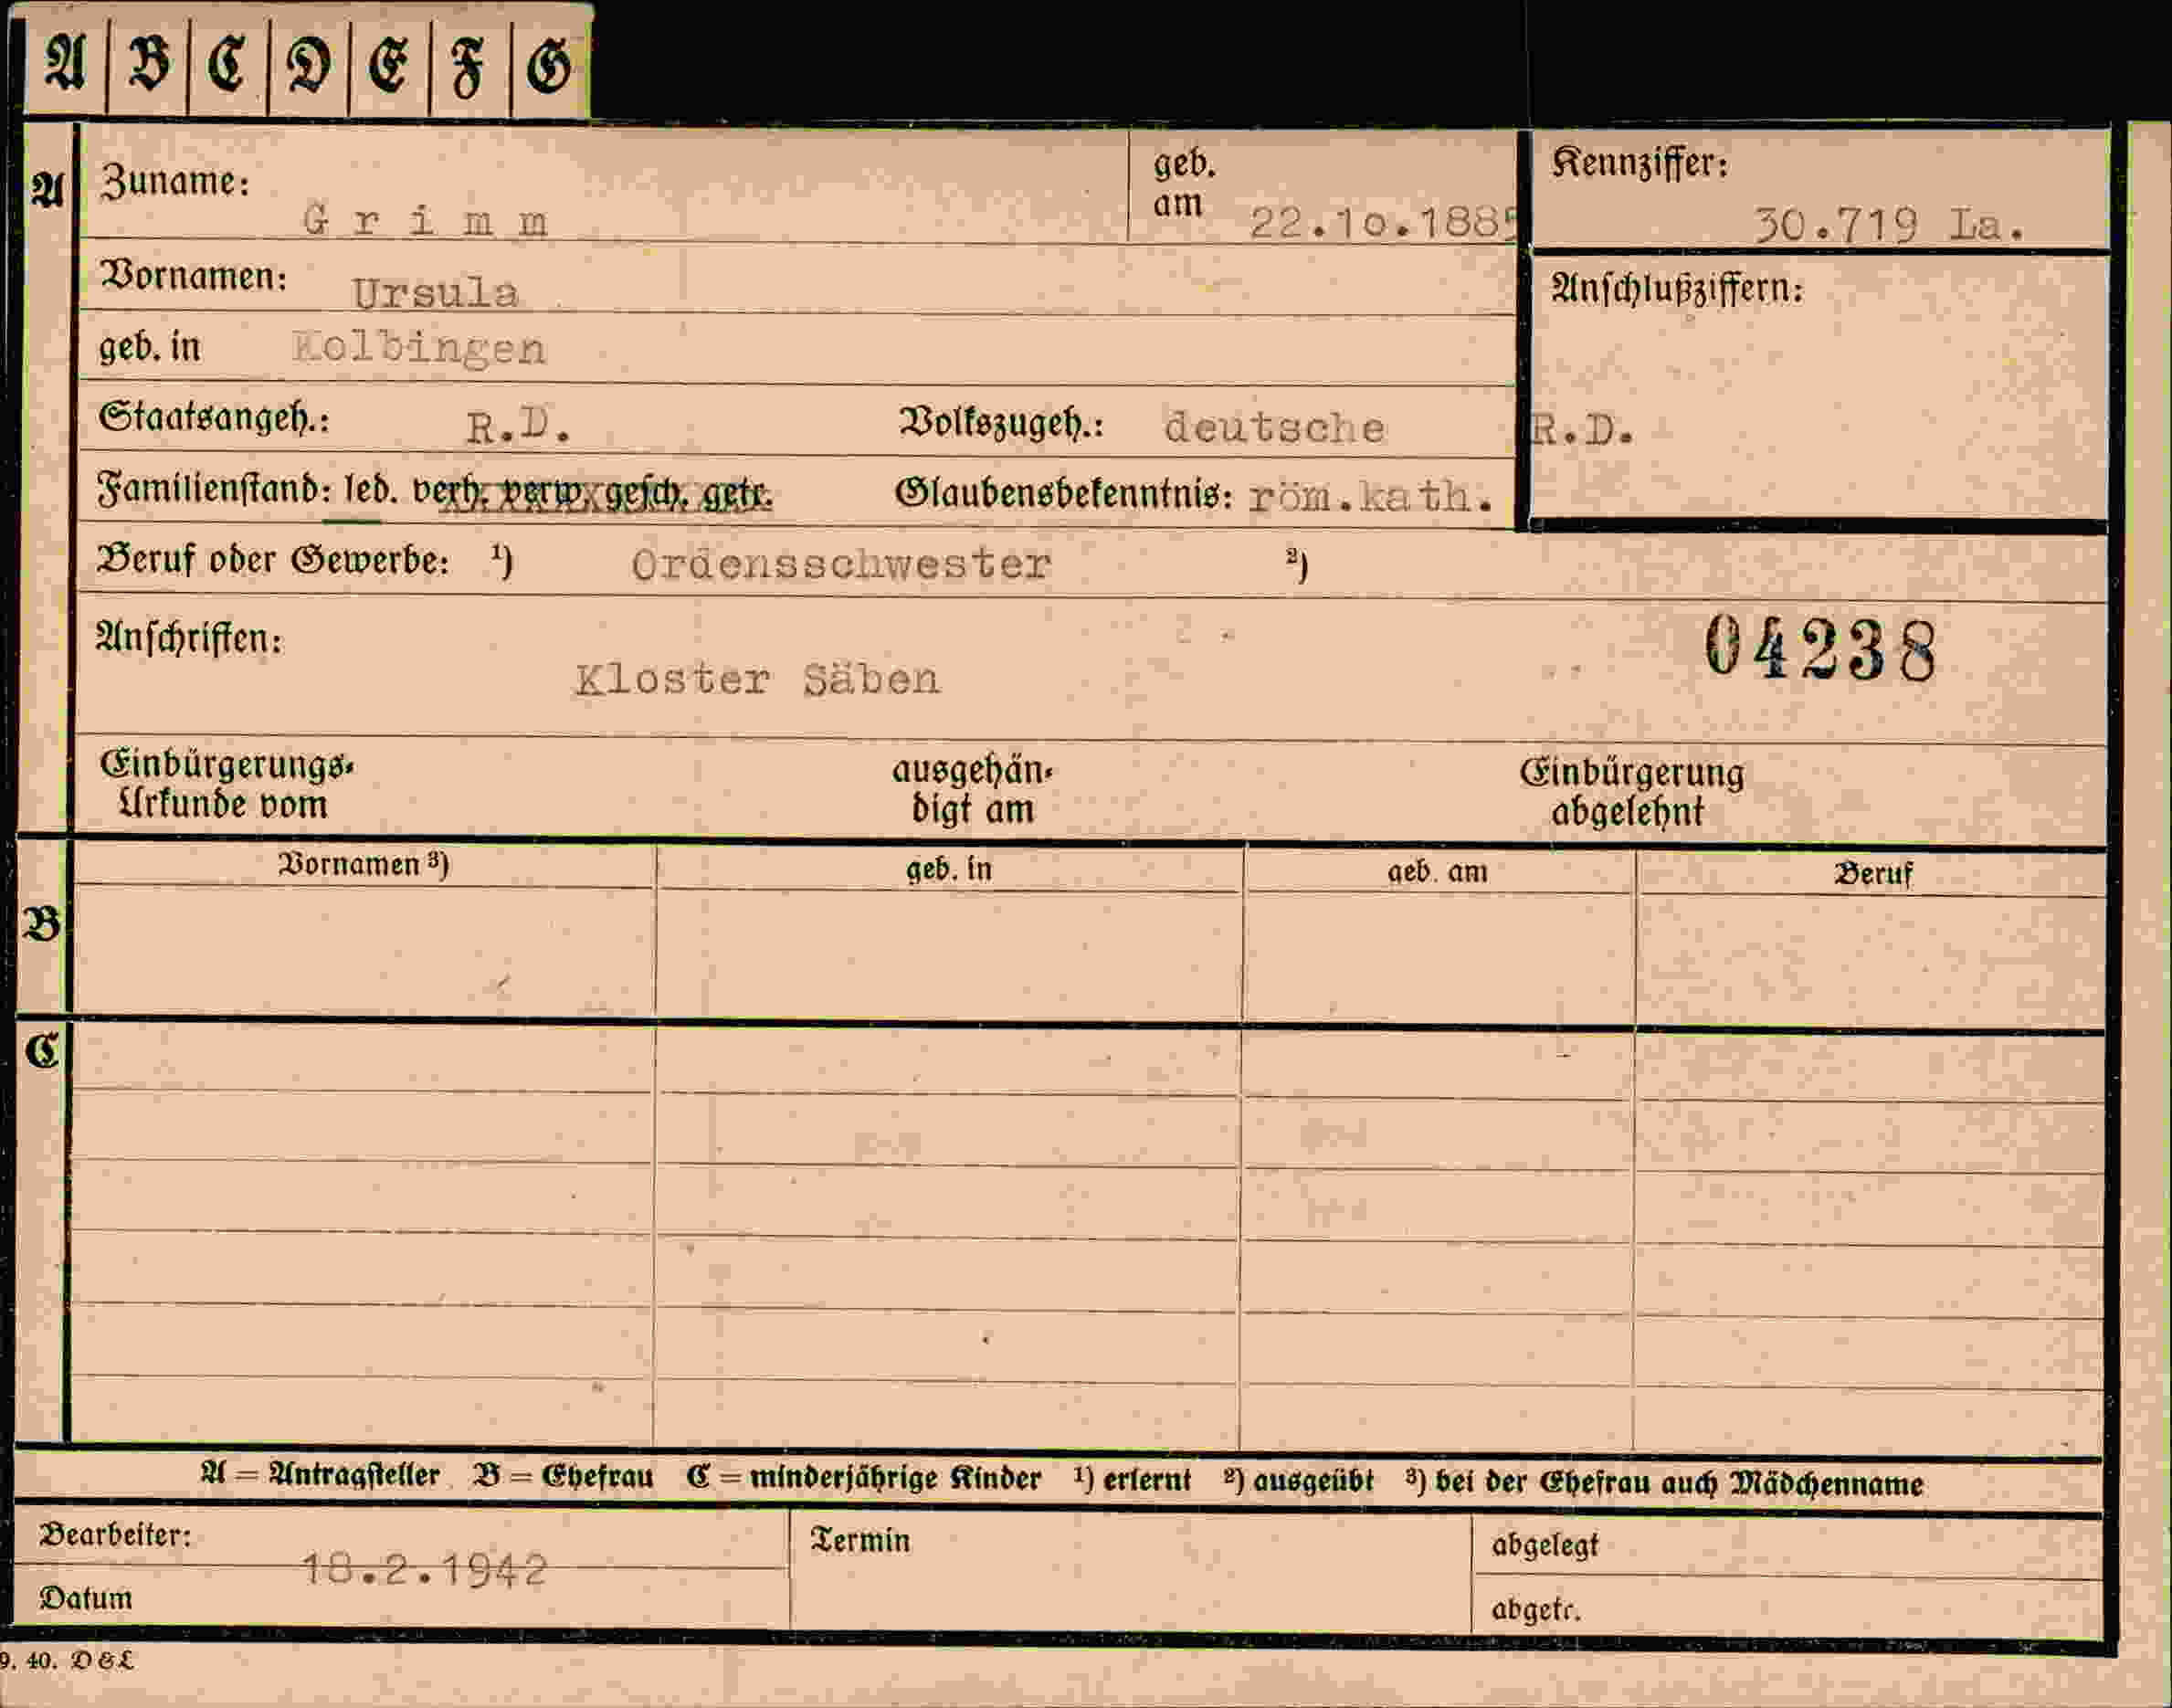 A B C D E F G
A Zuname: Grimm geb. am 22.10.1885 Kennziffer: 30.719 La.
Vornamen: Ursula Anschlußziffern:
geb. in Kolbingen
Staatsangeh.: R.D. Volkszugeh.: deutsche R.D.
Familienstand: led. verh. verw. gesch. getr. Glaubensbekenntnis: röm.kath.
Beruf oder Gewerbe: ¹) Ordensschwester ²)
Anschriften: 04238
Kloster Säben
Einbürgerungs- ausgehän- Einbürgerung
Urkunde vom digt am abgelehnt
Vornamen ³) geb. in geb. am Beruf
B
C
A = Antragsteller B = Ehefrau C = minderjährige Kinder ¹) erlernt ²) ausgeübt ³) bei der Ehefrau auch Mädchenname
Bearbeiter: Termin abgelegt
18.2.1942
Datum abgetr.
9. 40. D & L